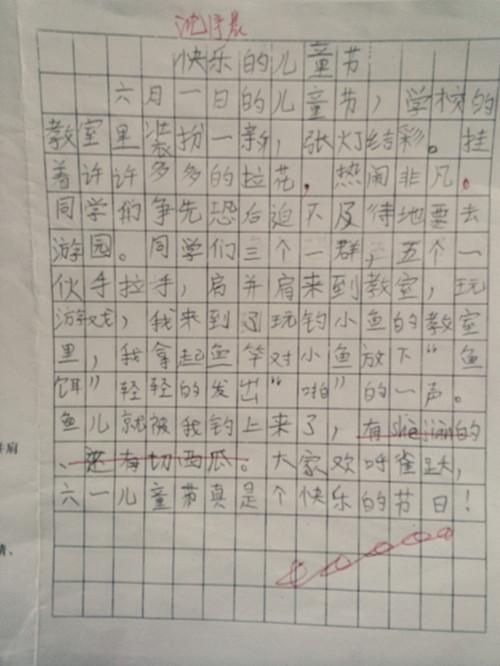 快乐的儿童节
六月一日的儿童节，学校的
教室里装扮一新，张灯结彩。挂
着许许多多的拉花，热闹非凡。
同学们争先恐后迫不及待地要去
游园。同学们三个一群，五个一
伙手拉手，肩并肩来到教室，玩
游戏，我来到了玩钓小鱼的教室
里，我拿起鱼竿对小鱼放下“鱼
饵”轻轻的发出“啪”的一声。
鱼儿就被我钓上来了，有she jian的
、还有切西瓜。大家欢呼雀跃，
六一儿童节真是个快乐的节日！
并肩